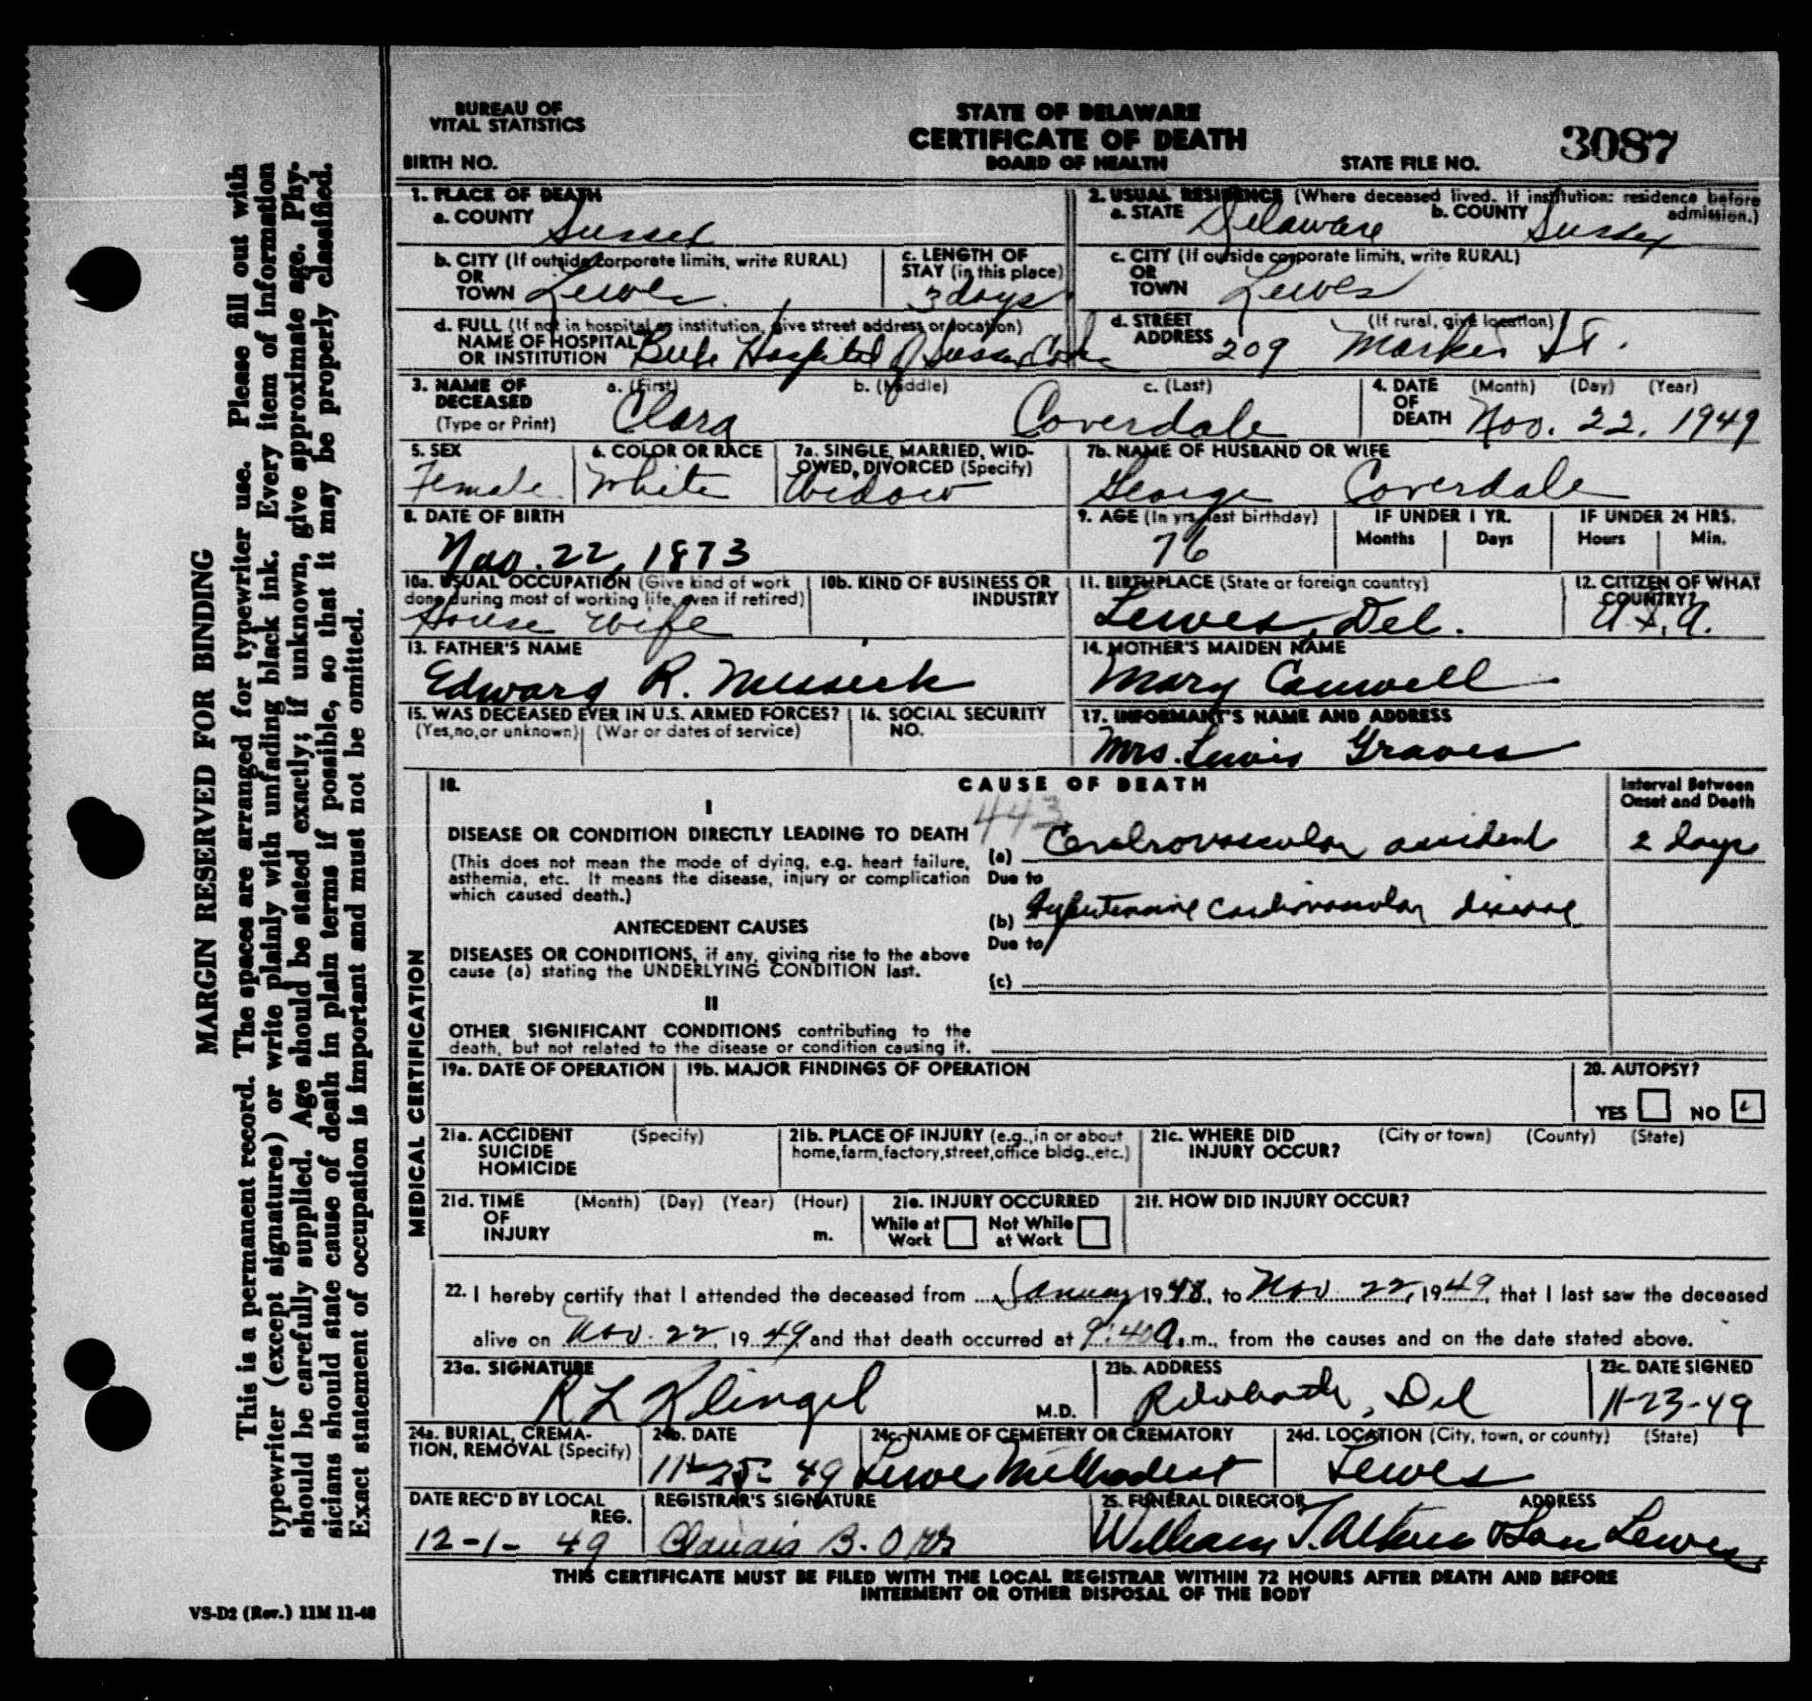 BUREAU OF
VITAL STATISTICS
STATE OF DELAWARE
CERTIFICATE OF DEATH
BOARD OF HEALTH
BIRTH NO.
STATE FILE NO. 3087
1. PLACE OF DEATH
a. COUNTY Sussex
2. USUAL RESIDENCE (Where deceased lived. If institution: residence before admission.)
a. STATE Delaware b. COUNTY Sussex
b. CITY (If outside corporate limits, write RURAL)
OR
TOWN Lewes
c. LENGTH OF
STAY (in this place)
3 days
c. CITY (If outside corporate limits, write RURAL)
OR
TOWN Lewes
d. FULL (If not in hospital or institution, give street address or location)
NAME OF HOSPITAL
OR INSTITUTION Beebe Hospital of Sussex Co.
d. STREET (If rural, give location)
ADDRESS 209 Market St.
3. NAME OF DECEASED
(Type or Print)
a. (First) Clara
b. (Middle)
c. (Last) Coverdale
4. DATE OF DEATH (Month) (Day) (Year)
Nov. 22, 1949
5. SEX
Female
6. COLOR OR RACE
White
7a. SINGLE, MARRIED, WIDOWED, DIVORCED (Specify)
Widow
7b. NAME OF HUSBAND OR WIFE
George Coverdale
8. DATE OF BIRTH
Nov. 22, 1873
9. AGE (In yrs, last birthday)
76
IF UNDER 1 YR.
Months Days
IF UNDER 24 HRS.
Hours Min.
10a. USUAL OCCUPATION (Give kind of work
done during most of working life, even if retired)
House wife
10b. KIND OF BUSINESS OR
INDUSTRY
11. BIRTHPLACE (State or foreign country)
Lewes, Del.
12. CITIZEN OF WHAT
COUNTRY?
U.S.A.
13. FATHER'S NAME
Edward R.
14. MOTHER'S MAIDEN NAME
Mary
15. WAS DECEASED EVER IN U.S. ARMED FORCES?
(Yes, no, or unknown) (War or dates of service)
16. SOCIAL SECURITY
NO.
17. INFORMANT'S NAME AND ADDRESS
Mrs. Lewis Graves
MEDICAL CERTIFICATION
18. CAUSE OF DEATH
Interval Between
Onset and Death
I
443
DISEASE OR CONDITION DIRECTLY LEADING TO DEATH
(a) Cerebrovascular accident 2 days
(This does not mean the mode of dying, e.g. heart failure,
asthemia, etc. It means the disease, injury or complication
which caused death.)
Due to
ANTECEDENT CAUSES
(b) Hypertensive cardiovascular disease
Due to
DISEASES OR CONDITIONS, if any, giving rise to the above
cause (a) stating the UNDERLYING CONDITION last.
(c)
II
OTHER SIGNIFICANT CONDITIONS contributing to the
death, but not related to the disease or condition causing it.
19a. DATE OF OPERATION
19b. MAJOR FINDINGS OF OPERATION
20. AUTOPSY?
YES NO
21a. ACCIDENT (Specify)
SUICIDE
HOMICIDE
21b. PLACE OF INJURY (e.g., in or about
home, farm, factory, street, office bldg., etc.)
21c. WHERE DID (City or town) (County) (State)
INJURY OCCUR?
21d. TIME (Month) (Day) (Year) (Hour)
OF
INJURY m.
21e. INJURY OCCURRED
While at Work Not While at Work
21f. HOW DID INJURY OCCUR?
22. I hereby certify that I attended the deceased from January 1948, to Nov 22, 1949, that I last saw the deceased
alive on Nov. 22, 1949 and that death occurred at 9:40 a.m., from the causes and on the date stated above.
23a. SIGNATURE
R L Klingel M.D.
23b. ADDRESS
Rehoboth, Del
23c. DATE SIGNED
11-23-49
24a. BURIAL, CREMATION, REMOVAL (Specify)
24b. DATE
11-25-49
24c. NAME OF CEMETERY OR CREMATORY
Lewes Methodist
24d. LOCATION (City, town, or county) (State)
Lewes
DATE REC'D BY LOCAL
REG.
12-1-49
REGISTRAR'S SIGNATURE
B. Orr
25. FUNERAL DIRECTOR ADDRESS
William T. Atkins & Son Lewes
THIS CERTIFICATE MUST BE FILED WITH THE LOCAL REGISTRAR WITHIN 72 HOURS AFTER DEATH AND BEFORE
INTERMENT OR OTHER DISPOSAL OF THE BODY
MARGIN RESERVED FOR BINDING
This is a permanent record. The spaces are arranged for typewriter use. Please fill out with
typewriter (except signatures) or write plainly with unfading black ink. Every item of information
should be carefully supplied. Age should be stated exactly; if unknown, give approximate age. Phy-
sicians should state cause of death in plain terms if possible, so that it may be properly classified.
Exact statement of occupation is important and must not be omitted.
VS-D2 (Rev.) 11M 11-48